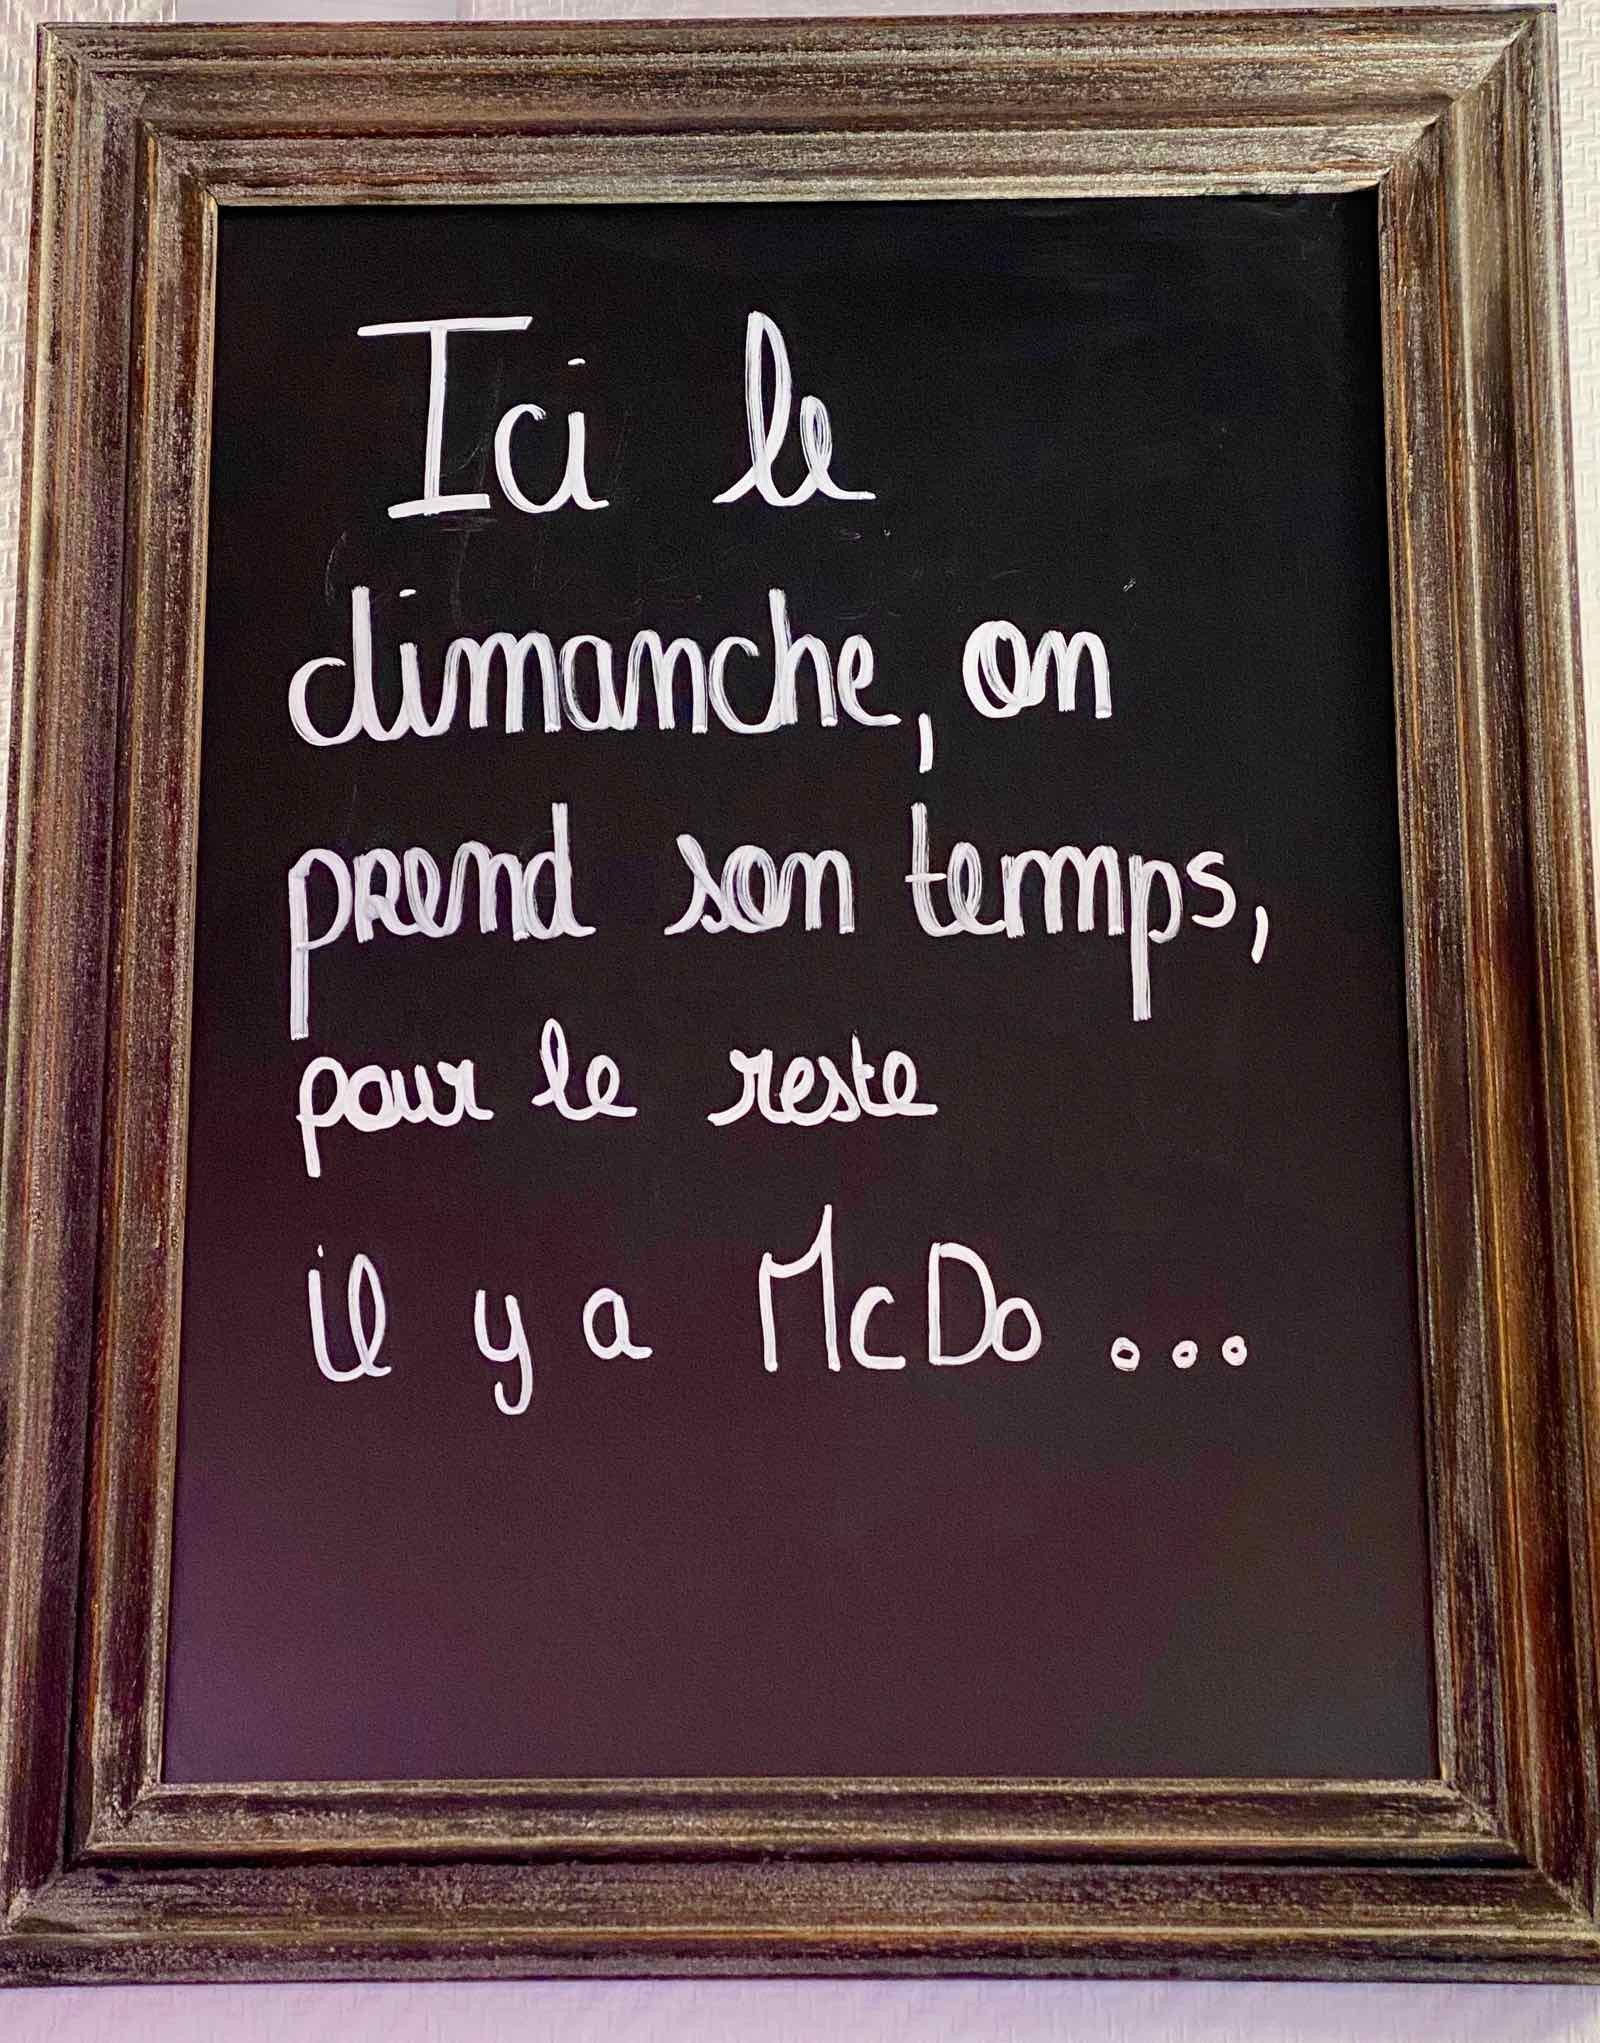 Ici le
dimanche, on
prend son temps,
pour le reste
il y a McDo...